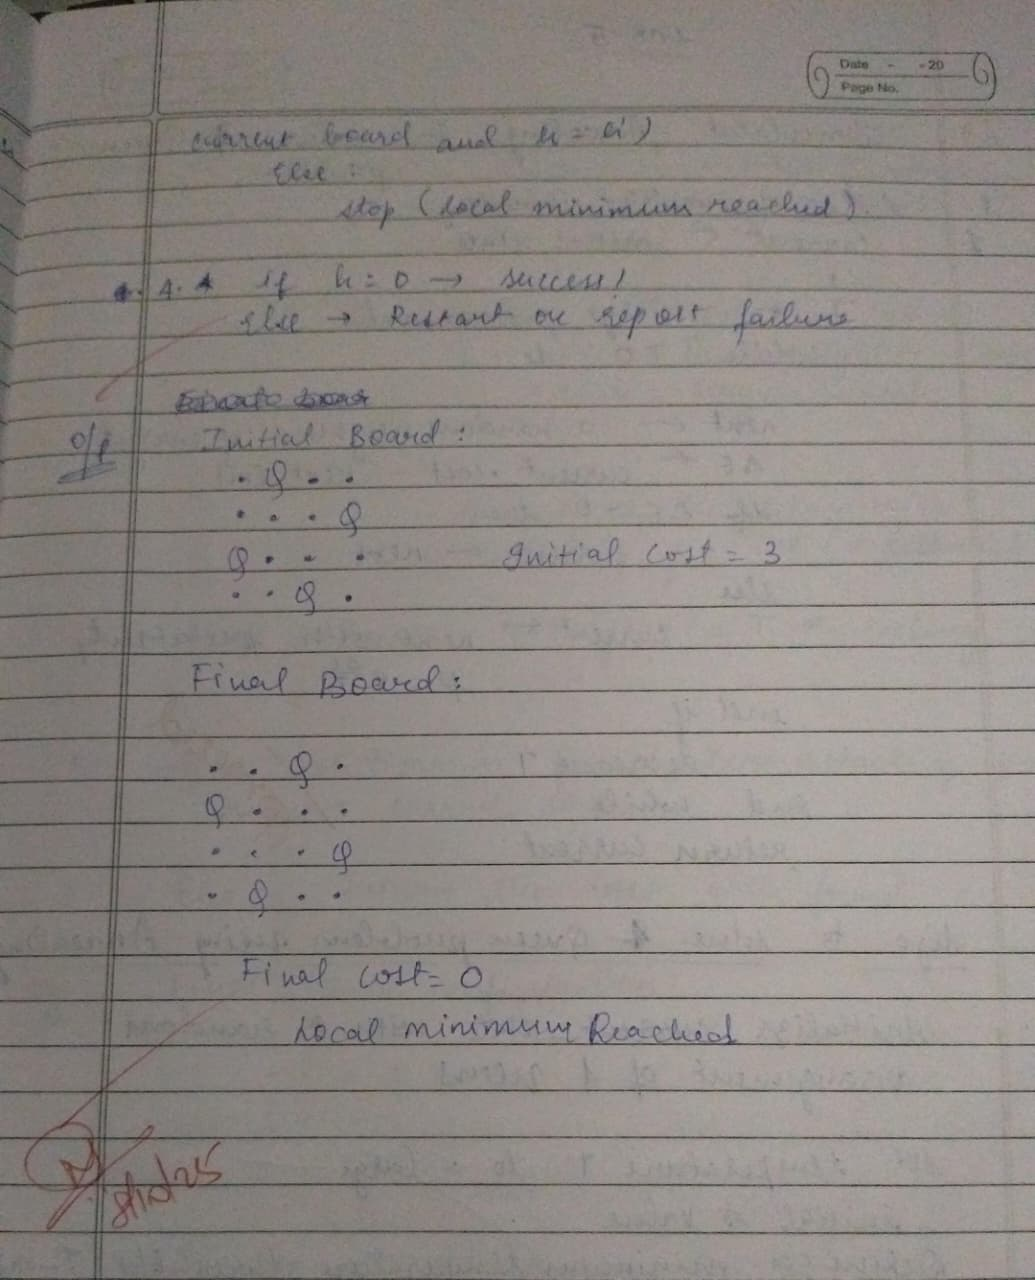 Date - - 20
Page No.
current board and h =
Else :
stop (local minimum reached)
4. if h = 0 → success!
Else → Restart or report failure
O/P Initial Board :
. Q . .
. . . Q
Q . . . Initial Cost = 3
. . Q .
Final Board :
. . Q .
Q . . .
. . . Q
. Q . .
Final Cost = 0
Local minimum Reached